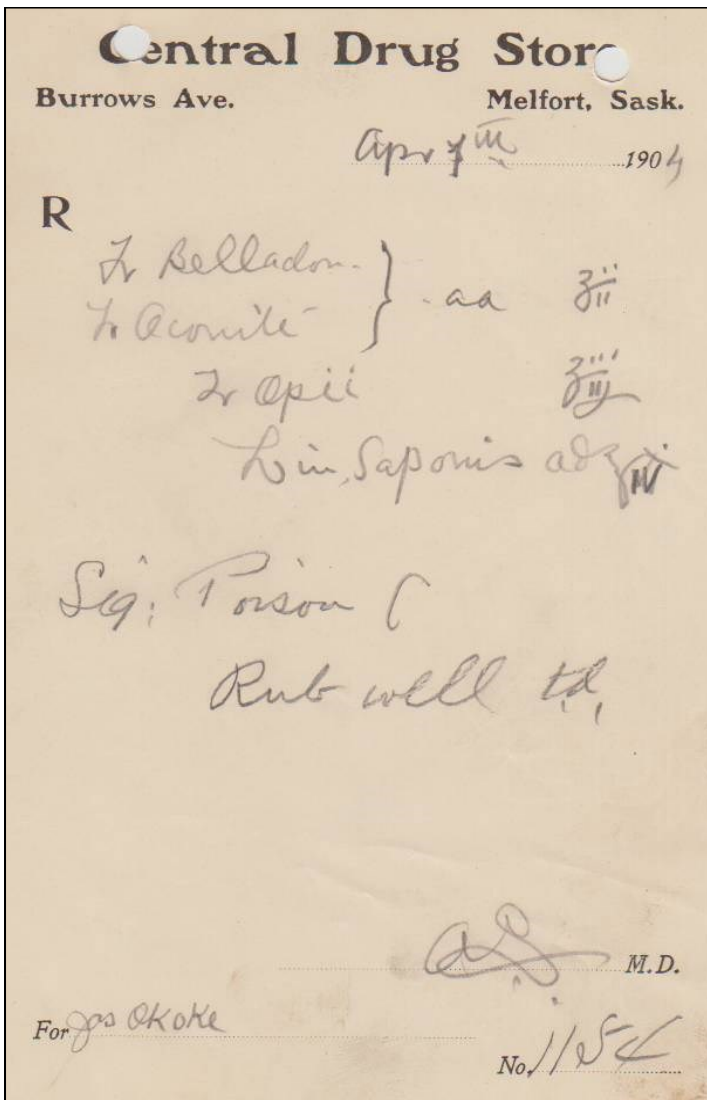 Central Drug Store
Burrows Ave. Melfort, Sask.
Apr 7th 1904
R
Tr Belladon.
Tr Aconite } aa ʒii
Tr Opii ʒiij
Lin. Saponis ad ℥iv
Sig: Poison
Rub well t.d.
M.D.
For Jas Okoke
No. 1154